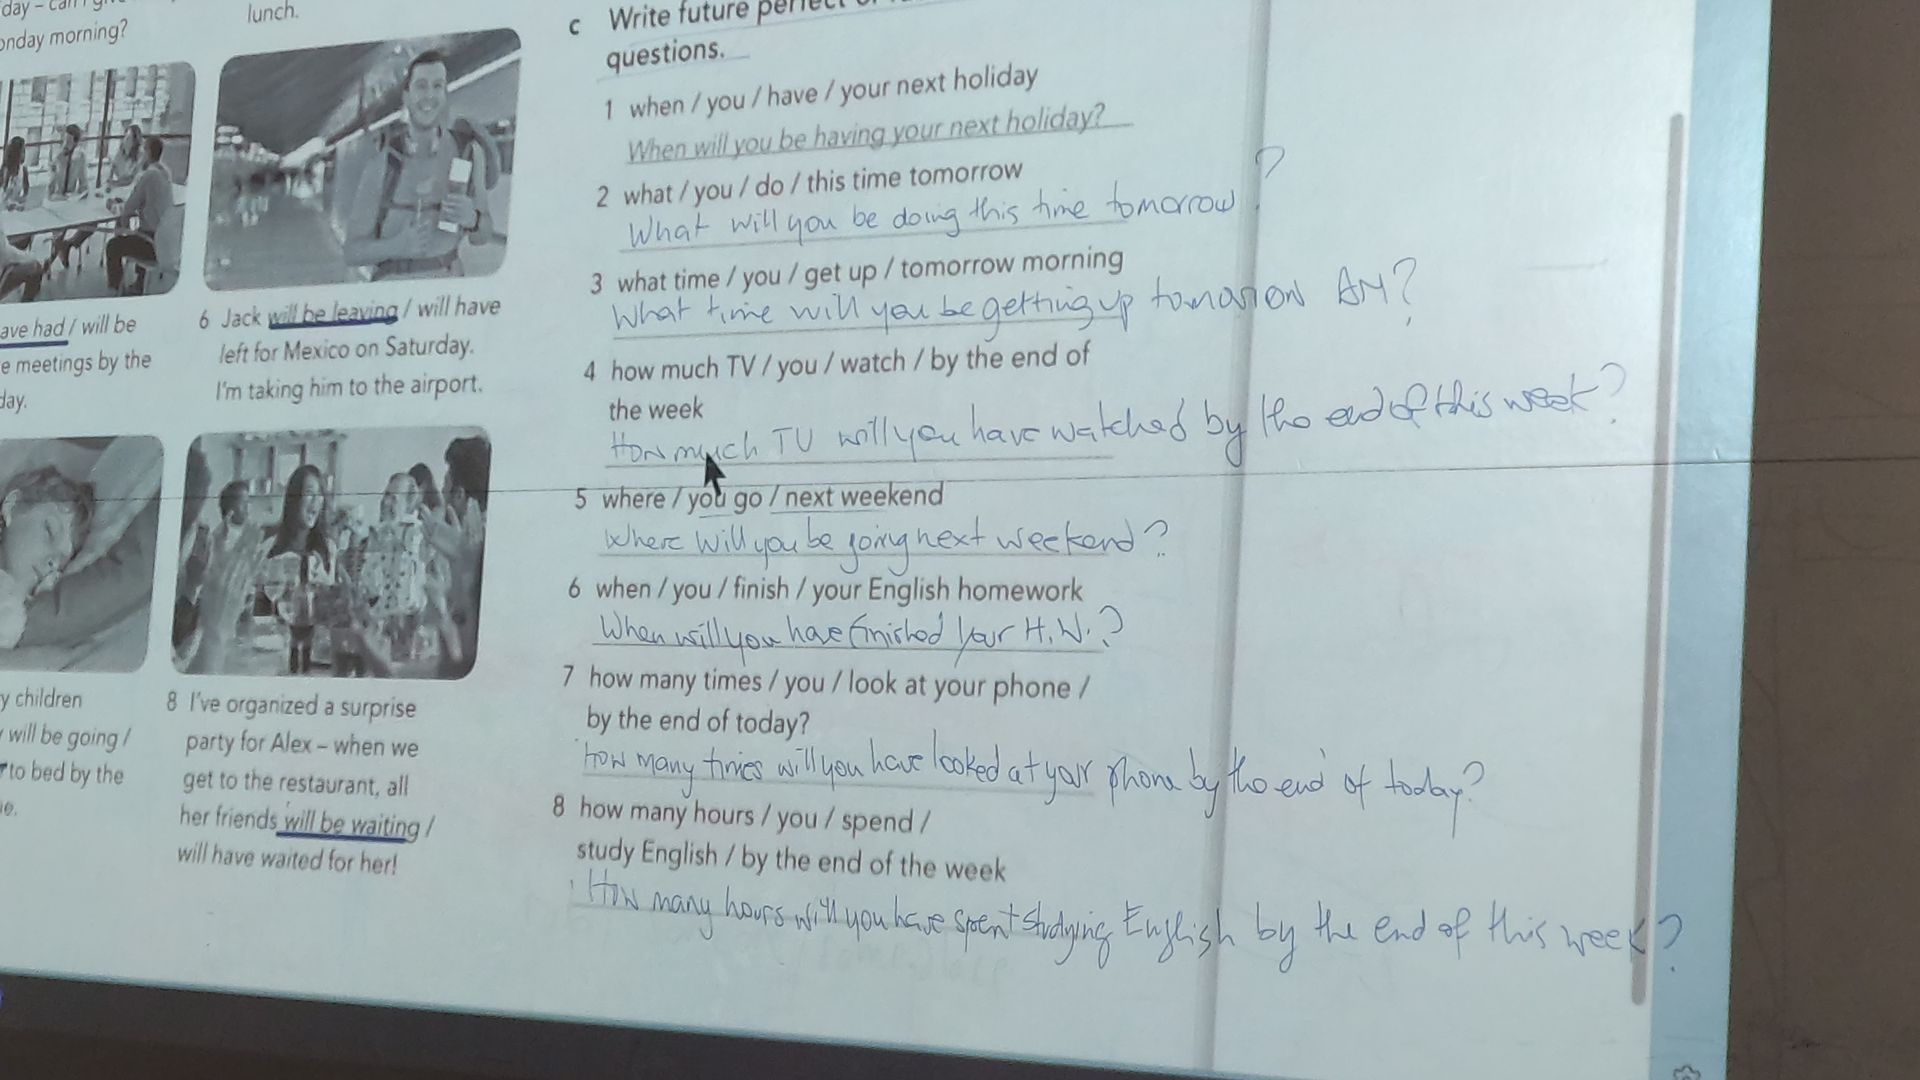 day – can I
onday morning?
ave had / will be
e meetings by the
day.
y children
will be going /
to bed by the
lunch.
6 Jack will be leaving / will have
left for Mexico on Saturday.
I'm taking him to the airport.
8 I've organized a surprise
party for Alex – when we
get to the restaurant, all
her friends will be waiting /
will have waited for her!
c Write future perfect or
questions.
1 when / you / have / your next holiday
When will you be having your next holiday?
2 what / you / do / this time tomorrow
What will you be doing this time tomorrow?
3 what time / you / get up / tomorrow morning
What time will you be getting up AM?
4 how much TV / you / watch / by the end of
the week
How much TV will you have watched by the end of this week?
5 where / you go / next weekend
Where will you be going next weekend?
6 when / you / finish / your English homework
When will you have finished your H.W.?
7 how many times / you / look at your phone /
by the end of today?
How many times will you have looked at your phone by the end of today?
8 how many hours / you / spend /
study English / by the end of the week
How many hours will you have spent studying English by the end of this week?